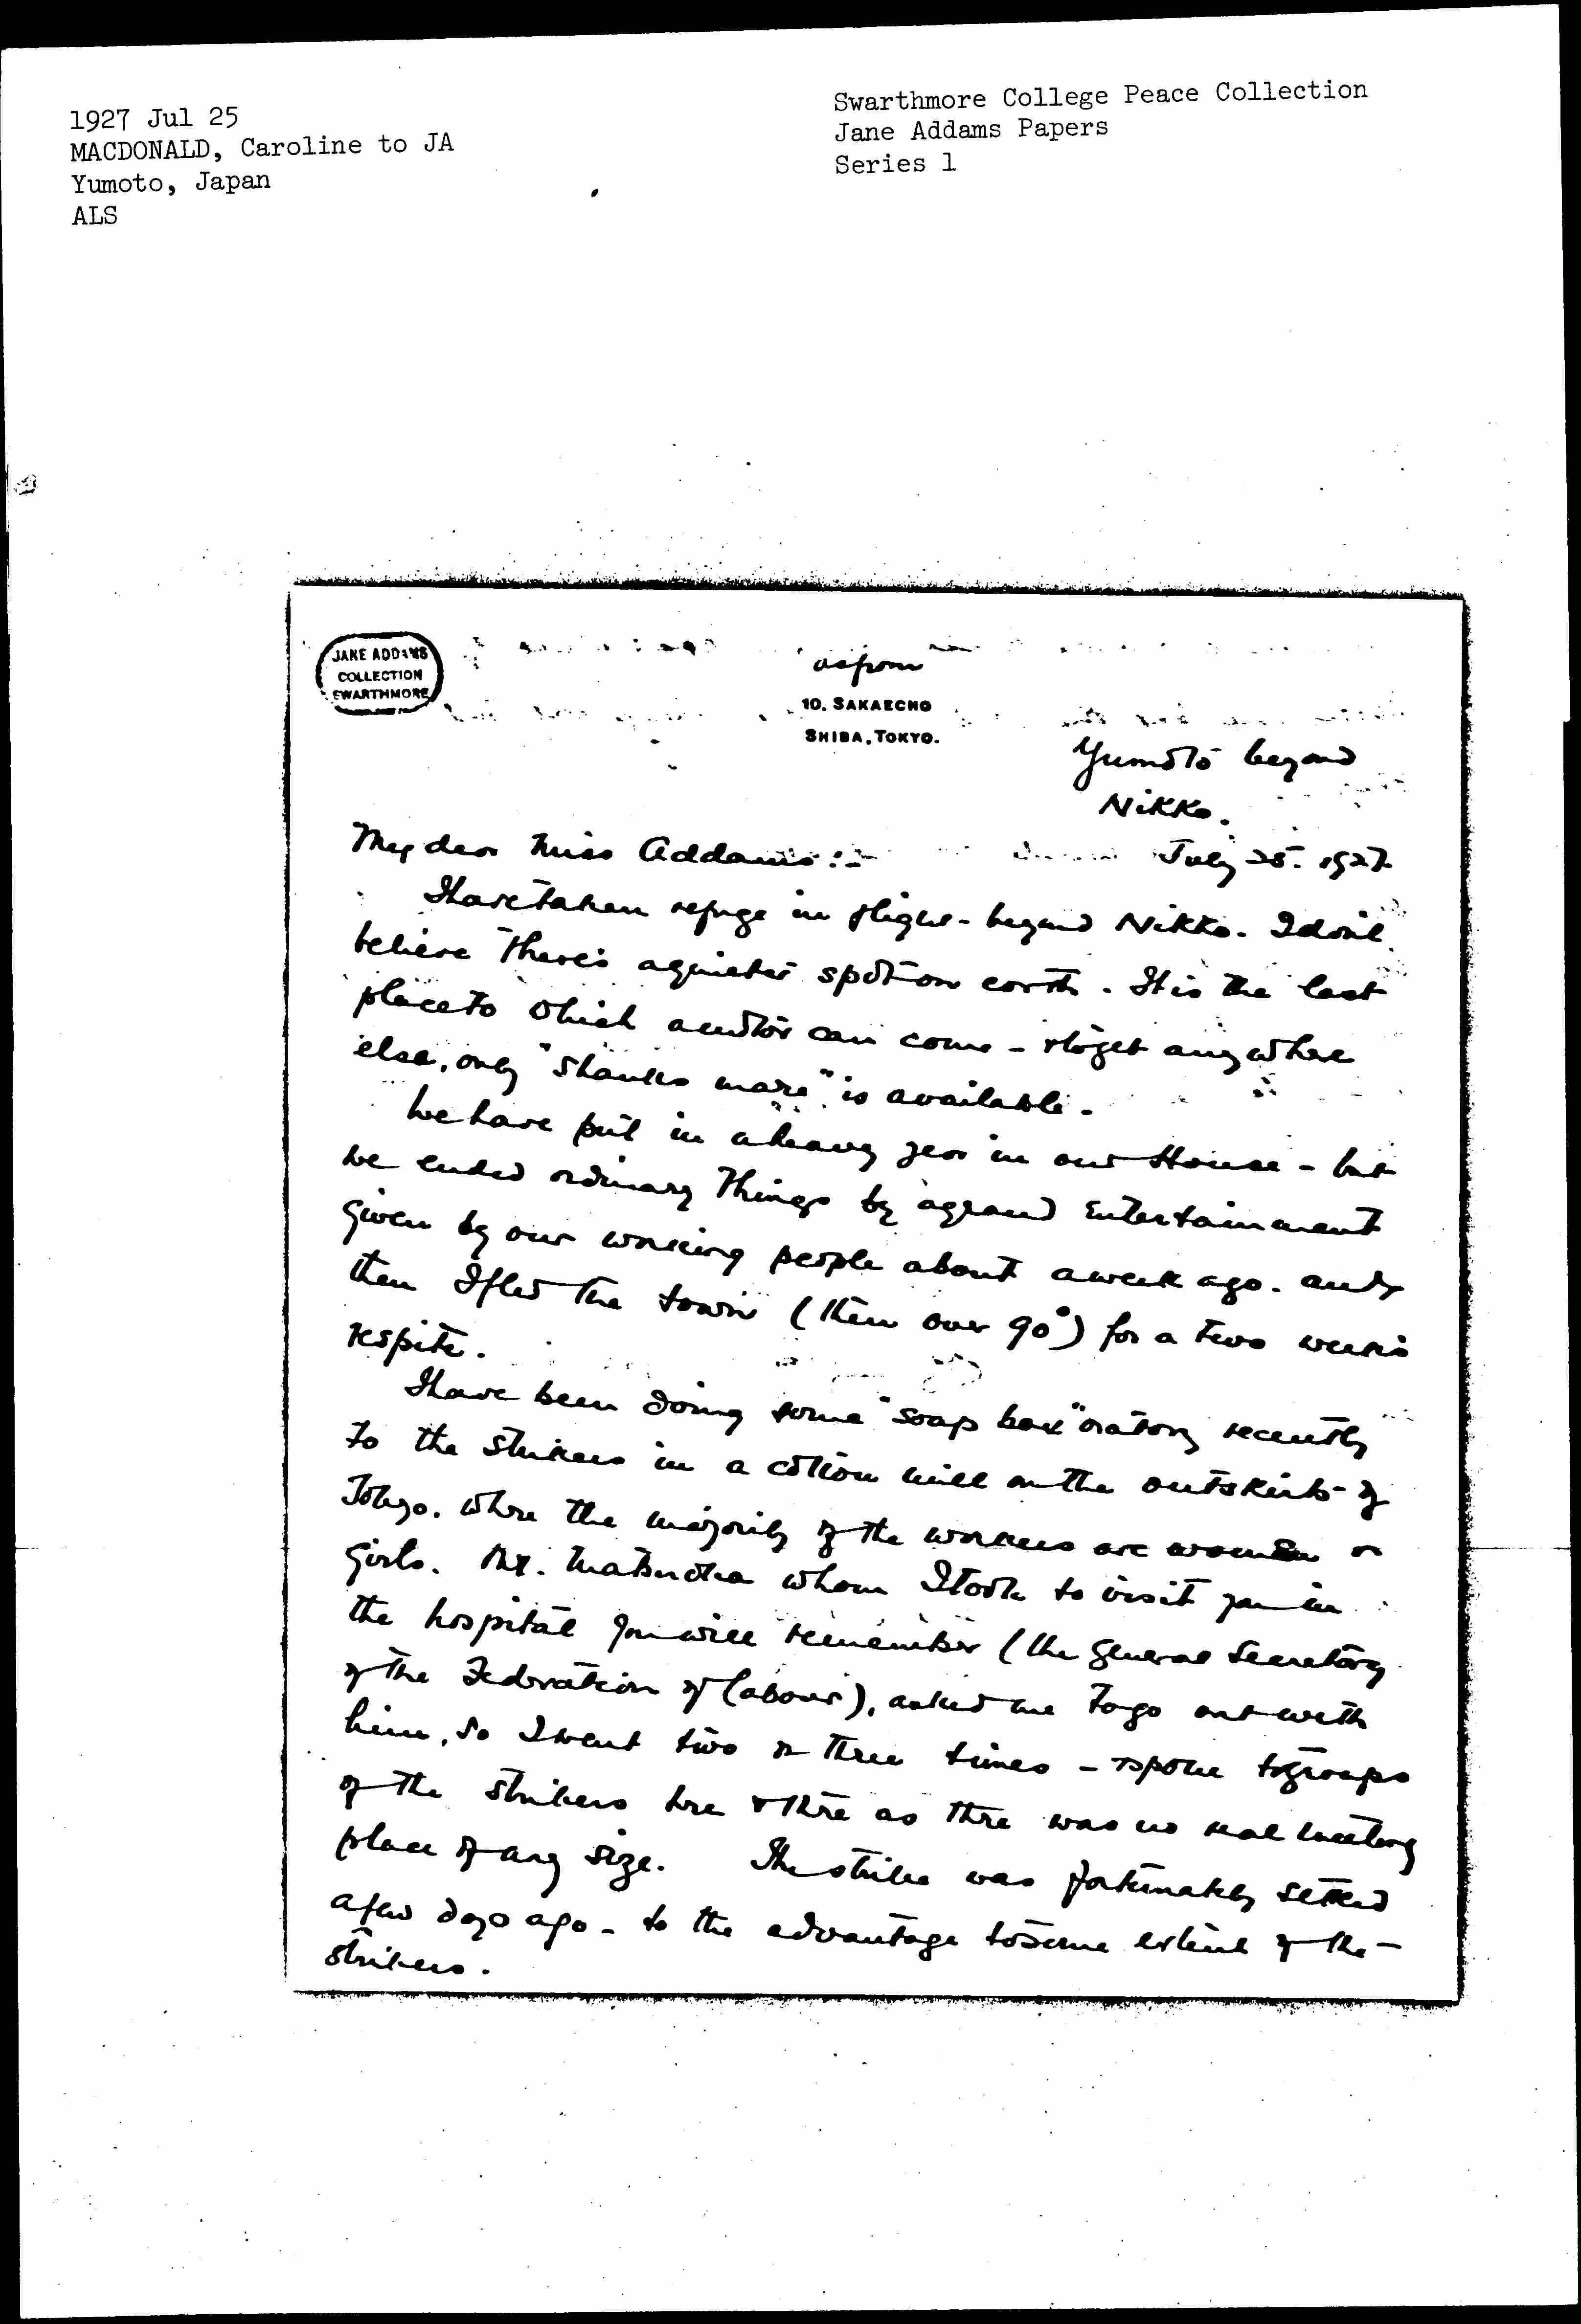 1927 Jul 25
MACDONALD, Caroline to JA
Yumoto, Japan
ALS
Swarthmore College Peace Collection
Jane Addams Papers
Series 1
JANE ADDAMS
COLLECTION
SWARTHMORE
as from
10. SAKAECHO
SHIBA, TOKYO.
Yumoto beyond
Nikko.
July 25. 1927
My dear Miss Addams:-
I have taken refuge in flight - beyond Nikko. I don't
believe there's a quieter spot on earth. It is the last
place to which a motor can come - & to get anywhere
else, only "shanks mare" is available.
We have put in a heavy year in our House - but
we ended ordinary things by a grand entertainment
given by our working people about a week ago. and
then I fled the town (then over 90°) for a two weeks
respite.
I have been doing some "soap box" oratory recently
to the strikers in a cotton mill on the outskirts of
Tokyo. where the majority of the workers are women or
girls. Mr. Matsuoka whom I took to visit you in
the hospital you will remember (the General Secretary
of the Federation of Labour), asked me to go out with
him, so I went two or three times - & spoke to groups
of the strikers here & there as there was no real meeting
place of any size. The strike was fortunately settled
a few days ago - to the advantage to some extent of the -
strikers.